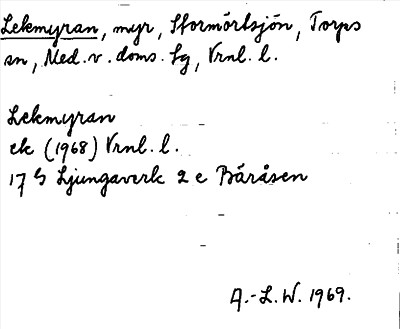 Lekmyran, myr, Stormörtsjön, Torps
sn, Med. v. doms. sg, Vrnl. l.
Lekmyran
ek (1968) Vrnl. l.
17 G Ljungaverk 2 e Båråsen
A.-L. W. 1969.